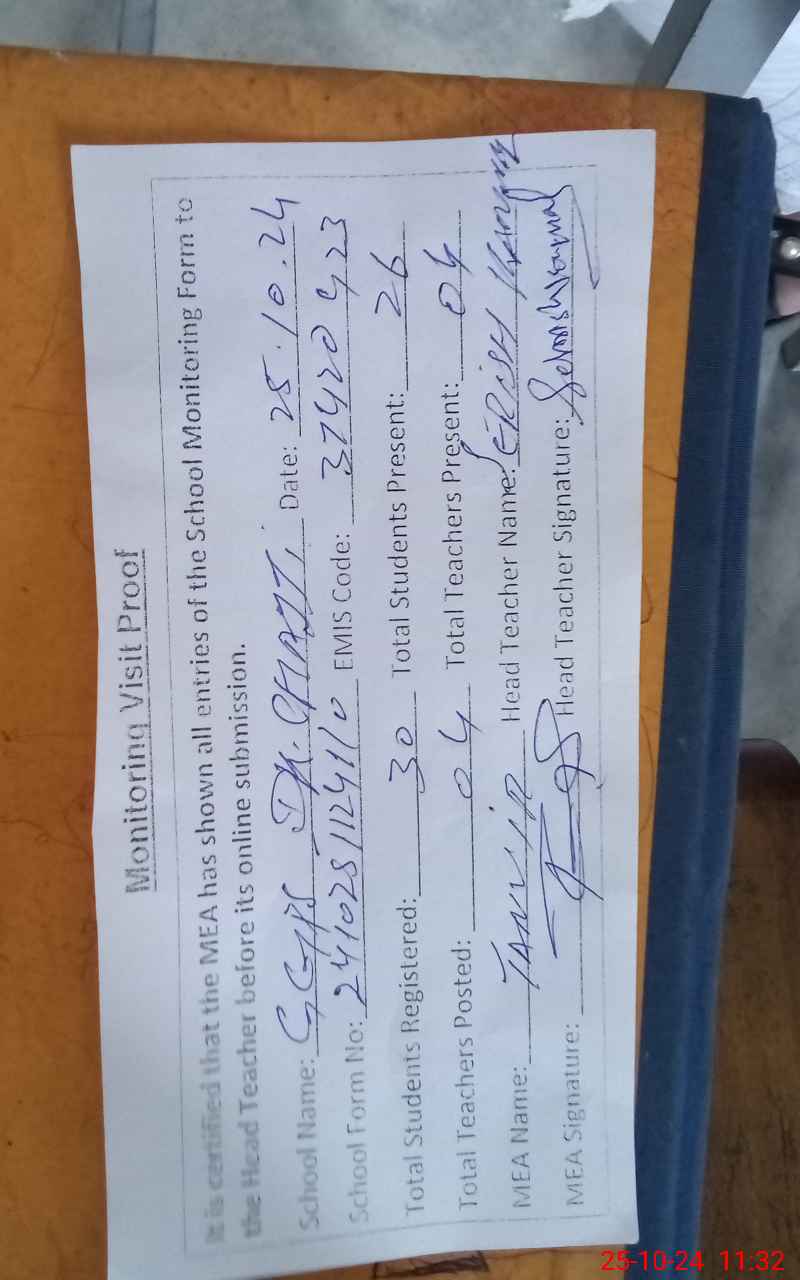 Monitoring Visit Proof
It is certified that the MEA has shown all entries of the School Monitoring Form to
the Head Teacher before its online submission.
School Name: GGPS Date: 25.10.24
School Form No: EMIS Code: 37420423
Total Students Registered: 30 Total Students Present: 26
Total Teachers Posted: 04 Total Teachers Present: 04
MEA Name: TANVIR Head Teacher Name:
MEA Signature: Head Teacher Signature:
25-10-24 11:32